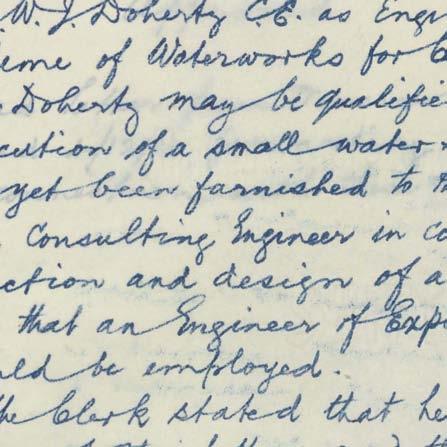 W. J. Doherty C.E. as Engi
eme of Waterworks for
Doherty may be qualifie
cution of a small water
yet been farnished to t
Consulting Engineer in co
ction and design of a
that an Engineer of Exp
uld be employed.
the Clerk stated that he